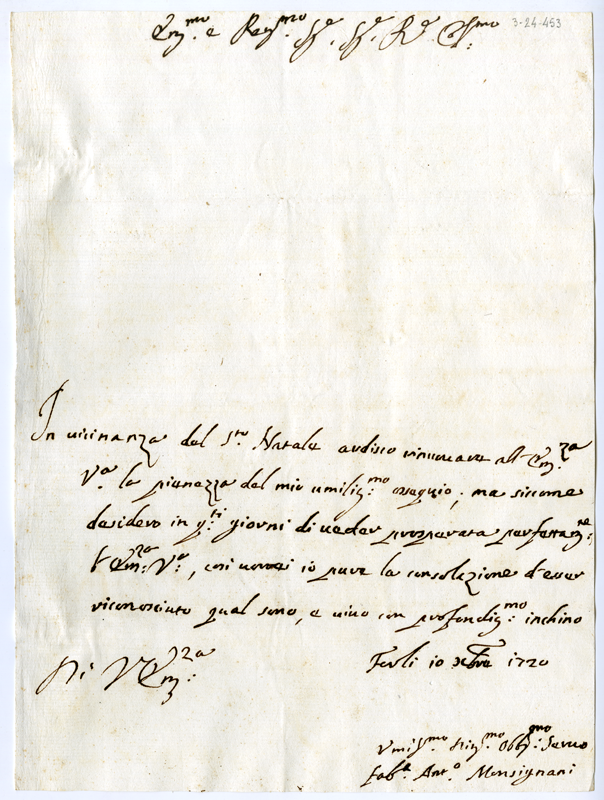 Em:mo e Reu:mo Sig.e Sig.e P.e Col:mo 3-24-453
In uicinanza del S.to Natale ardisco rinnouare all'Em:za
V.a la pienezza del mio umilis:mo ossequio; ma siccome
desidero in q.ti giorni di ueder prosperata perfettam:te
l'Em:za V.a, così uorrei io pure la consolazione d'esser
riconosciuto qual sono, e uiuo con profondis:mo inchino
Di V Em:za
Forlì 10 Xbre 1720
Vmil:mo Diu:mo Obb:mo Seruo
Fab.o Ant.o Monsignani